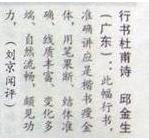 行书杜甫诗 邱金生
（广东）：此幅行书，
准确讲应是楷书瘦金
体，用笔果断、结体准
确、线质丰富、变化多
端、自然流畅，颇见功
力。（刘京闻评）